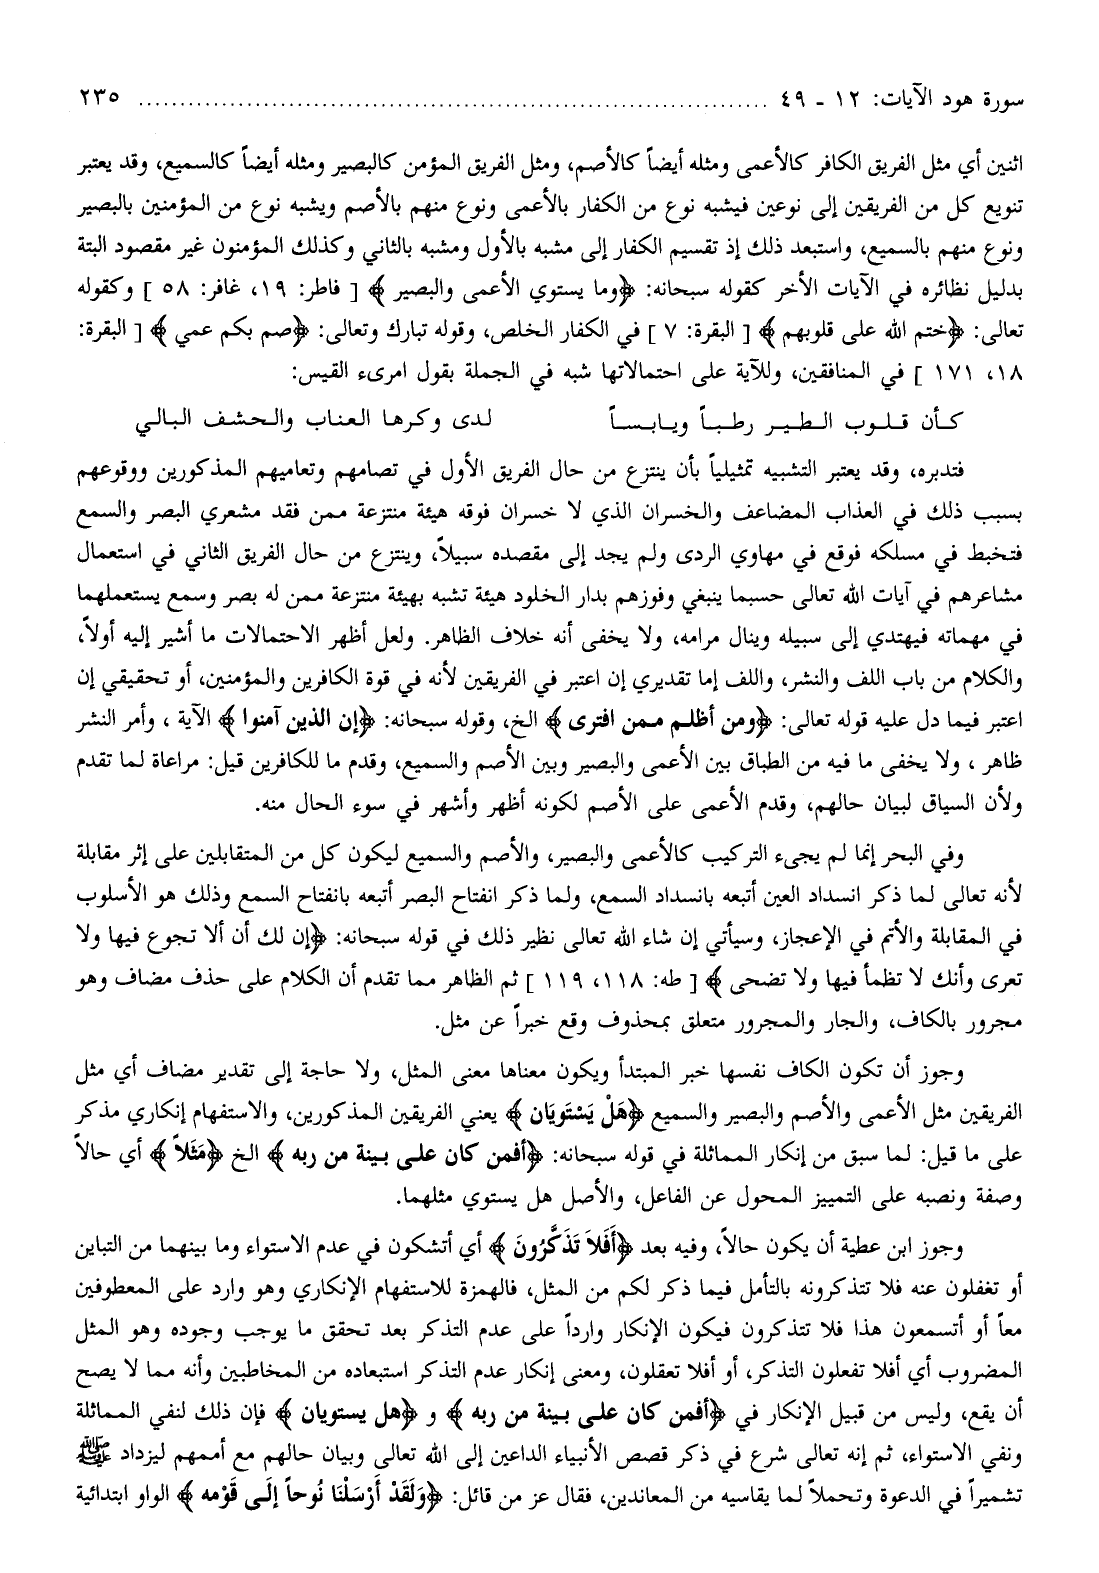 سورة هود الآيات: ١٢ - ٤٩ ........................................................................ ٢٣٥
اثنين أي مثل الفريق الكافر كالأعمى ومثله أيضاً كالأصم، ومثل الفريق المؤمن كالبصير ومثله أيضاً كالسميع، وقد يعتبر
تنويع كل من الفريقين إلى نوعين فيشبه نوع من الكفار بالأعمى ونوع منهم بالأصم ويشبه نوع من المؤمنين بالبصير
ونوع منهم بالسميع، واستبعد ذلك إذ تقسيم الكفار إلى مشبه بالأول ومشبه بالثاني وكذلك المؤمنون غير مقصود البتة
بدليل نظائره في الآيات الأخر كقوله سبحانه: ﴿وما يستوي الأعمى والبصير﴾ [ فاطر: ١٩، غافر: ٥٨ ] وكقوله
تعالى: ﴿ختم الله على قلوبهم﴾ [ البقرة: ٧ ] في الكفار الخلص، وقوله تبارك وتعالى: ﴿صم بكم عمي﴾ [ البقرة:
١٨، ١٧١ ] في المنافقين، وللآية على احتمالاتها شبه في الجملة بقول امرىء القيس:
كأن قلوب الطير رطباً ويابساً لدى وكرها العناب والحشف البالي
فتدبره، وقد يعتبر التشبيه تمثيلياً بأن ينتزع من حال الفريق الأول في تصامهم وتعاميهم المذكورين ووقوعهم
بسبب ذلك في العذاب المضاعف والخسران الذي لا خسران فوقه هيئة منتزعة ممن فقد مشعري البصر والسمع
فتخبط في مسلكه فوقع في مهاوي الردى ولم يجد إلى مقصده سبيلاً، وينتزع من حال الفريق الثاني في استعمال
مشاعرهم في آيات الله تعالى حسبما ينبغي وفوزهم بدار الخلود هيئة تشبه بهيئة منتزعة ممن له بصر وسمع يستعملهما
في مهماته فيهتدي إلى سبيله وينال مرامه، ولا يخفى أنه خلاف الظاهر. ولعل أظهر الاحتمالات ما أشير إليه أولاً،
والكلام من باب اللف والنشر، واللف إما تقديري إن اعتبر في الفريقين لأنه في قوة الكافرين والمؤمنين، أو تحقيقي إن
اعتبر فيما دل عليه قوله تعالى: ﴿ومن أظلم ممن افترى﴾ الخ، وقوله سبحانه: ﴿إن الذين آمنوا﴾ الآية ، وأمر النشر
ظاهر ، ولا يخفى ما فيه من الطباق بين الأعمى والبصير وبين الأصم والسميع، وقدم ما للكافرين قيل: مراعاة لما تقدم
ولأن السياق لبيان حالهم، وقدم الأعمى على الأصم لكونه أظهر وأشهر في سوء الحال منه.
وفي البحر إنما لم يجىء التركيب كالأعمى والبصير، والأصم والسميع ليكون كل من المتقابلين على إثر مقابلة
لأنه تعالى لما ذكر انسداد العين أتبعه بانسداد السمع، ولما ذكر انفتاح البصر أتبعه بانفتاح السمع وذلك هو الأسلوب
في المقابلة والأتم في الإعجاز، وسيأتي إن شاء الله تعالى نظير ذلك في قوله سبحانه: ﴿إن لك أن ألا تجوع فيها ولا
تعرى وأنك لا تظمأ فيها ولا تضحى﴾ [ طه: ١١٨، ١١٩ ] ثم الظاهر مما تقدم أن الكلام على حذف مضاف وهو
مجرور بالكاف، والجار والمجرور متعلق بمحذوف وقع خبراً عن مثل.
وجوز أن تكون الكاف نفسها خبر المبتدأ ويكون معناها معنى المثل، ولا حاجة إلى تقدير مضاف أي مثل
الفريقين مثل الأعمى والأصم والبصير والسميع ﴿هَلْ يَسْتَويَان﴾ يعني الفريقين المذكورين، والاستفهام إنكاري مذكر
على ما قيل: لما سبق من إنكار المماثلة في قوله سبحانه: ﴿أفمن كان على بينة من ربه﴾ الخ ﴿مَثَلاً﴾ أي حالاً
وصفة ونصبه على التمييز المحول عن الفاعل، والأصل هل يستوي مثلهما.
وجوز ابن عطية أن يكون حالاً، وفيه بعد ﴿أَفَلاَ تَذَكَّرُونَ﴾ أي أتشكون في عدم الاستواء وما بينهما من التباين
أو تغفلون عنه فلا تتذكرونه بالتأمل فيما ذكر لكم من المثل، فالهمزة للاستفهام الإنكاري وهو وارد على المعطوفين
معاً أو أتسمعون هذا فلا تتذكرون فيكون الإنكار وارداً على عدم التذكر بعد تحقق ما يوجب وجوده وهو المثل
المضروب أي أفلا تفعلون التذكر، أو أفلا تعقلون، ومعنى إنكار عدم التذكر استبعاده من المخاطبين وأنه مما لا يصح
أن يقع، وليس من قبيل الإنكار في ﴿أفمن كان على بينة من ربه﴾ و ﴿هل يستويان﴾ فإن ذلك لنفي المماثلة
ونفي الاستواء، ثم إنه تعالى شرع في ذكر قصص الأنبياء الداعين إلى الله تعالى وبيان حالهم مع أممهم ليزداد ﷺ
تشميراً في الدعوة وتحملاً لما يقاسيه من المعاندين، فقال عز من قائل: ﴿وَلَقَدْ أَرْسَلْنَا نُوحاً إلَى قَوْمه﴾ الواو ابتدائية